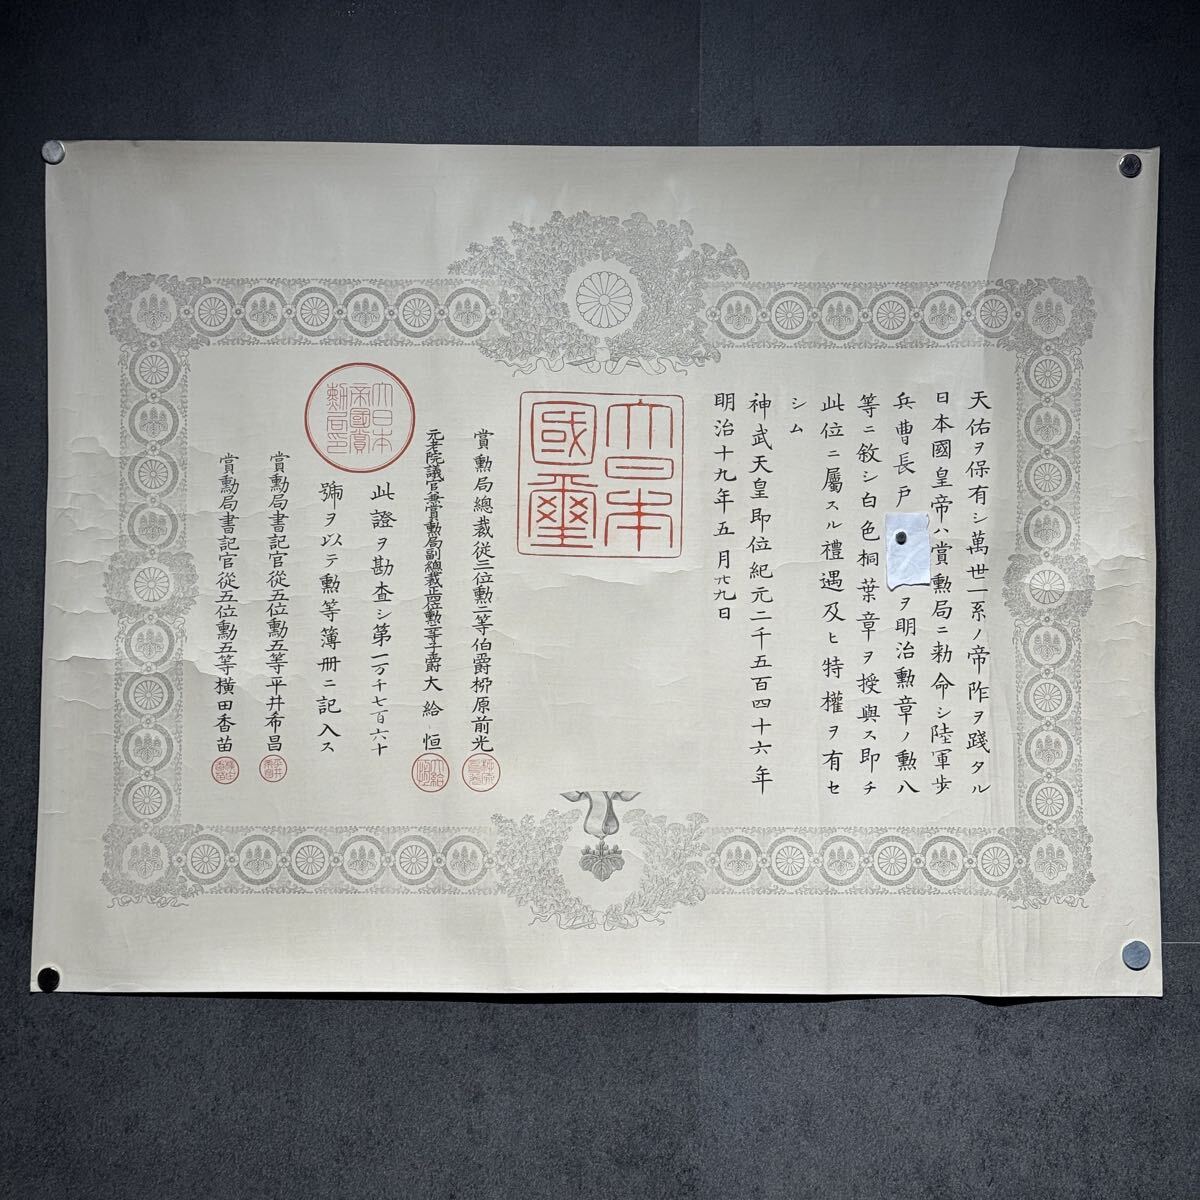 天佑ヲ保有シ萬世一系ノ帝阼ヲ踐タル
日本國皇帝ハ賞勲局ニ勅命シ陸軍歩
兵曹長戸
ヲ明治勲章ノ勲八
等ニ敘シ白色桐葉章ヲ授與ス即チ
此位ニ屬スル禮遇及ヒ特權ヲ有セ
シム
神武天皇即位紀元二千五百四十六年
明治十九年五月廿九日
大日本
國璽
賞勲局總裁從三位勲二等伯爵柳原前光
元老院議官兼賞勲局副總裁正四位勲二等子爵大給恒
此證ヲ勘査シ第一万千七百六十
號ヲ以テ勲等簿册ニ記入ス
大日本
帝國賞
勲局印
賞勲局書記官從五位勲五等平井希昌
賞勲局書記官從五位勲五等横田香苗